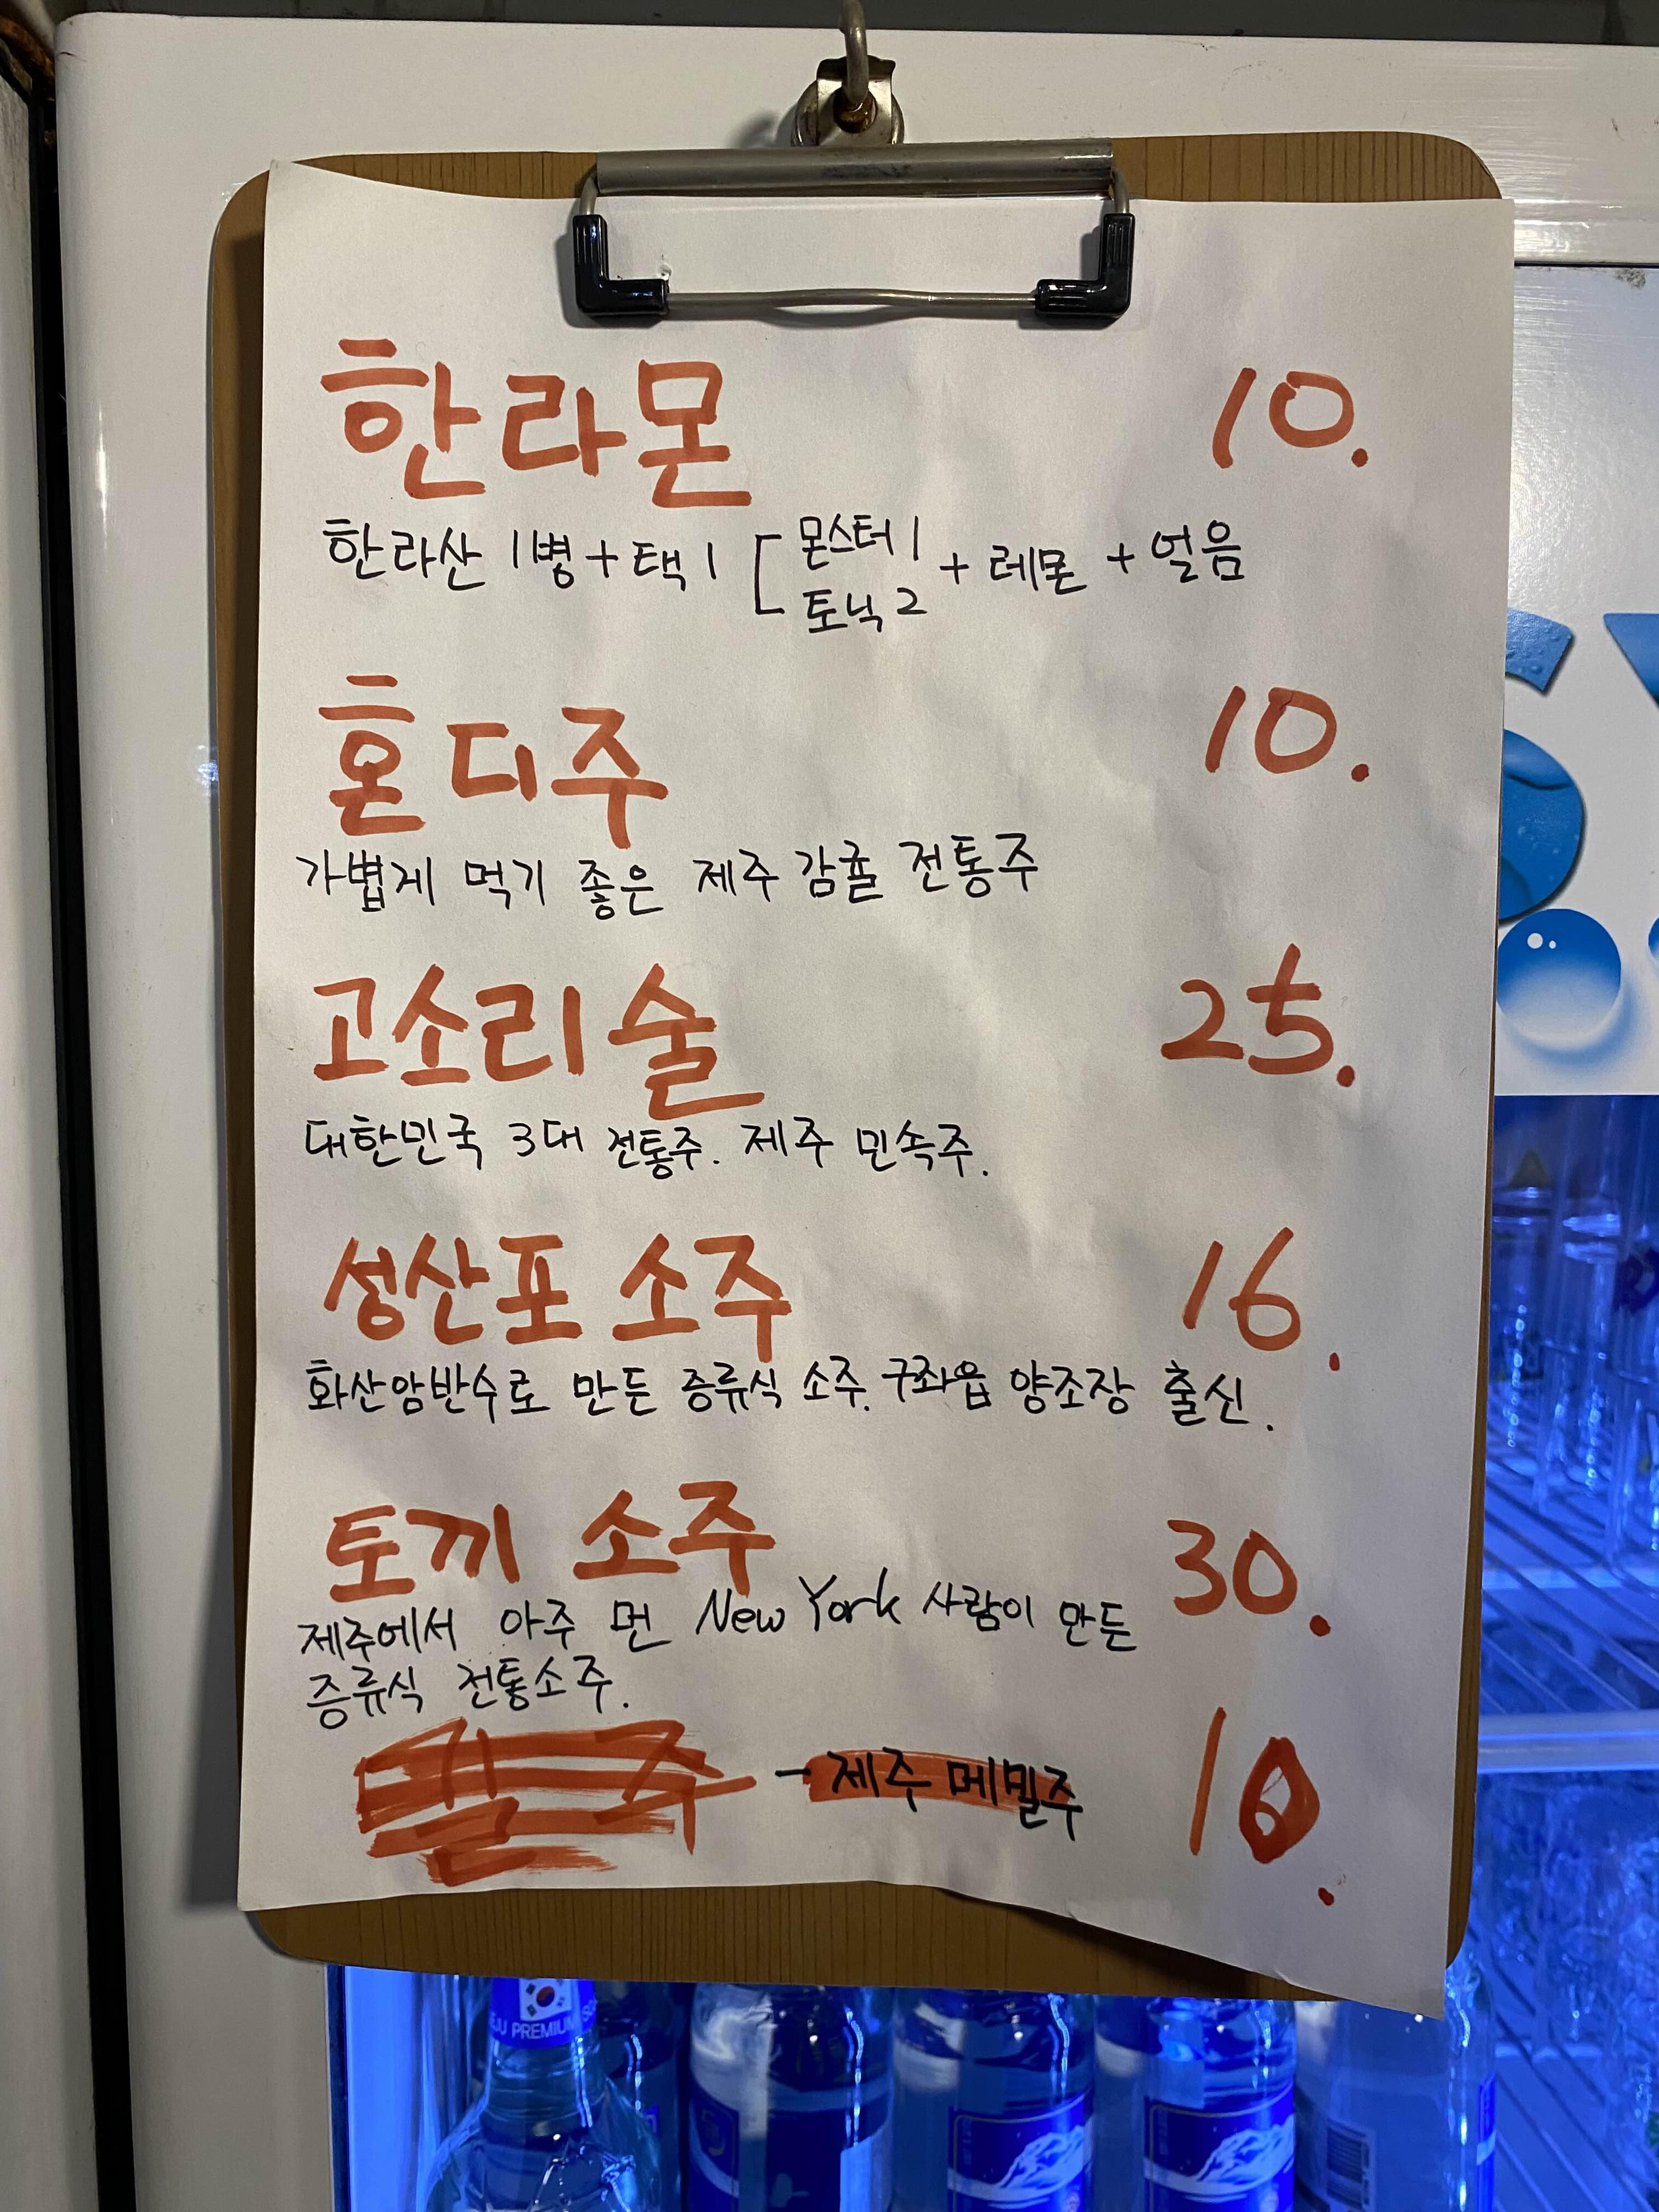 한라몬 10.
한라산 1병 + 택1 [ 몬스터 1 + 레몬 + 얼음
토닉 2
혼디주 10.
가볍게 먹기 좋은 제주 감귤 전통주
고소리술 25.
대한민국 3대 전통주. 제주 민속주.
성산포 소주 16.
화산암반수로 만든 증류식 소주. 구좌읍 양조장 출신.
토끼 소주 30.
제주에서 아주 먼 New York 사람이 만든
증류식 전통소주.
- 제주 메밀주
JU PREMIUM